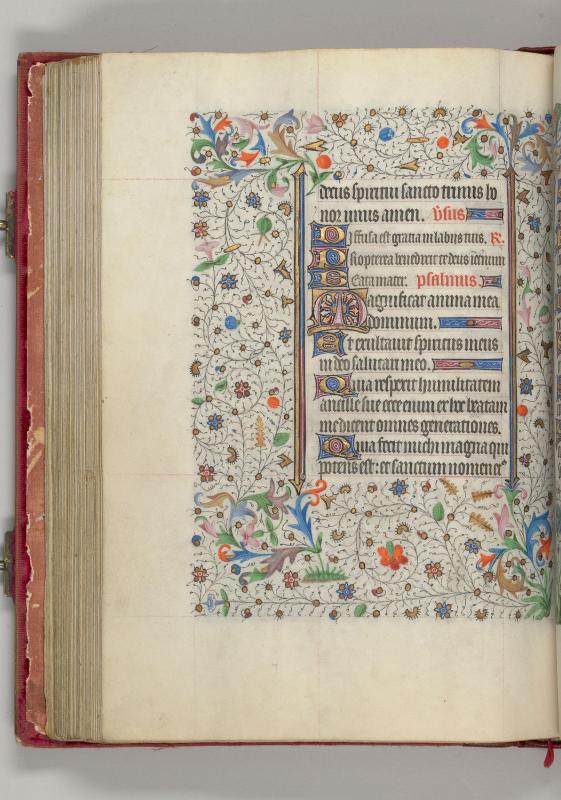 deus spiritui sancto trinus ho
nor unus amen. v̄sus
Diffusa est gratia in labijs tuis. R.
Propterea benedixit te deus ī eternum
Beata mater. psalmus.
Magnificat anima mea
dominum.
Et exultauit spiritus meus
in deo salutari meo.
Quia respexit humilitatem
ancille sue ecce enim ex hoc beatam
me dicent omnes generationes.
Quia fecit michi magna qui
potens est: et sanctum nomen eꝰ